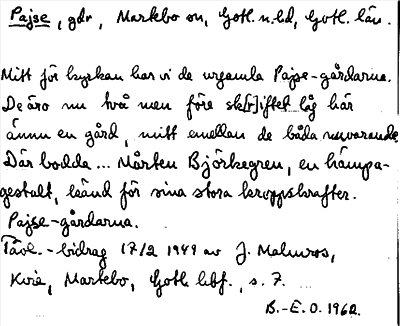 Pajse, gdr, Martebo sn, Gotl. n. hd, Gotl. län.
Mitt för kyrkan har vi de urgamla Pajse-gårdarna.
De äro nu två men före sk[r]iftet låg här
ännu en gård, mitt emellan de båda nuvarande.
Där bodde ... Mårten Björkegren, en kämpa-
gestalt, känd för sina stora kroppskrafter.
Pajse-gårdarna.
Tävl.-bidrag 17/2 1949 av J. Malmros,
Kvie, Martebo, Gotl. hbf., s. 7.
B.-E. O. 1962.